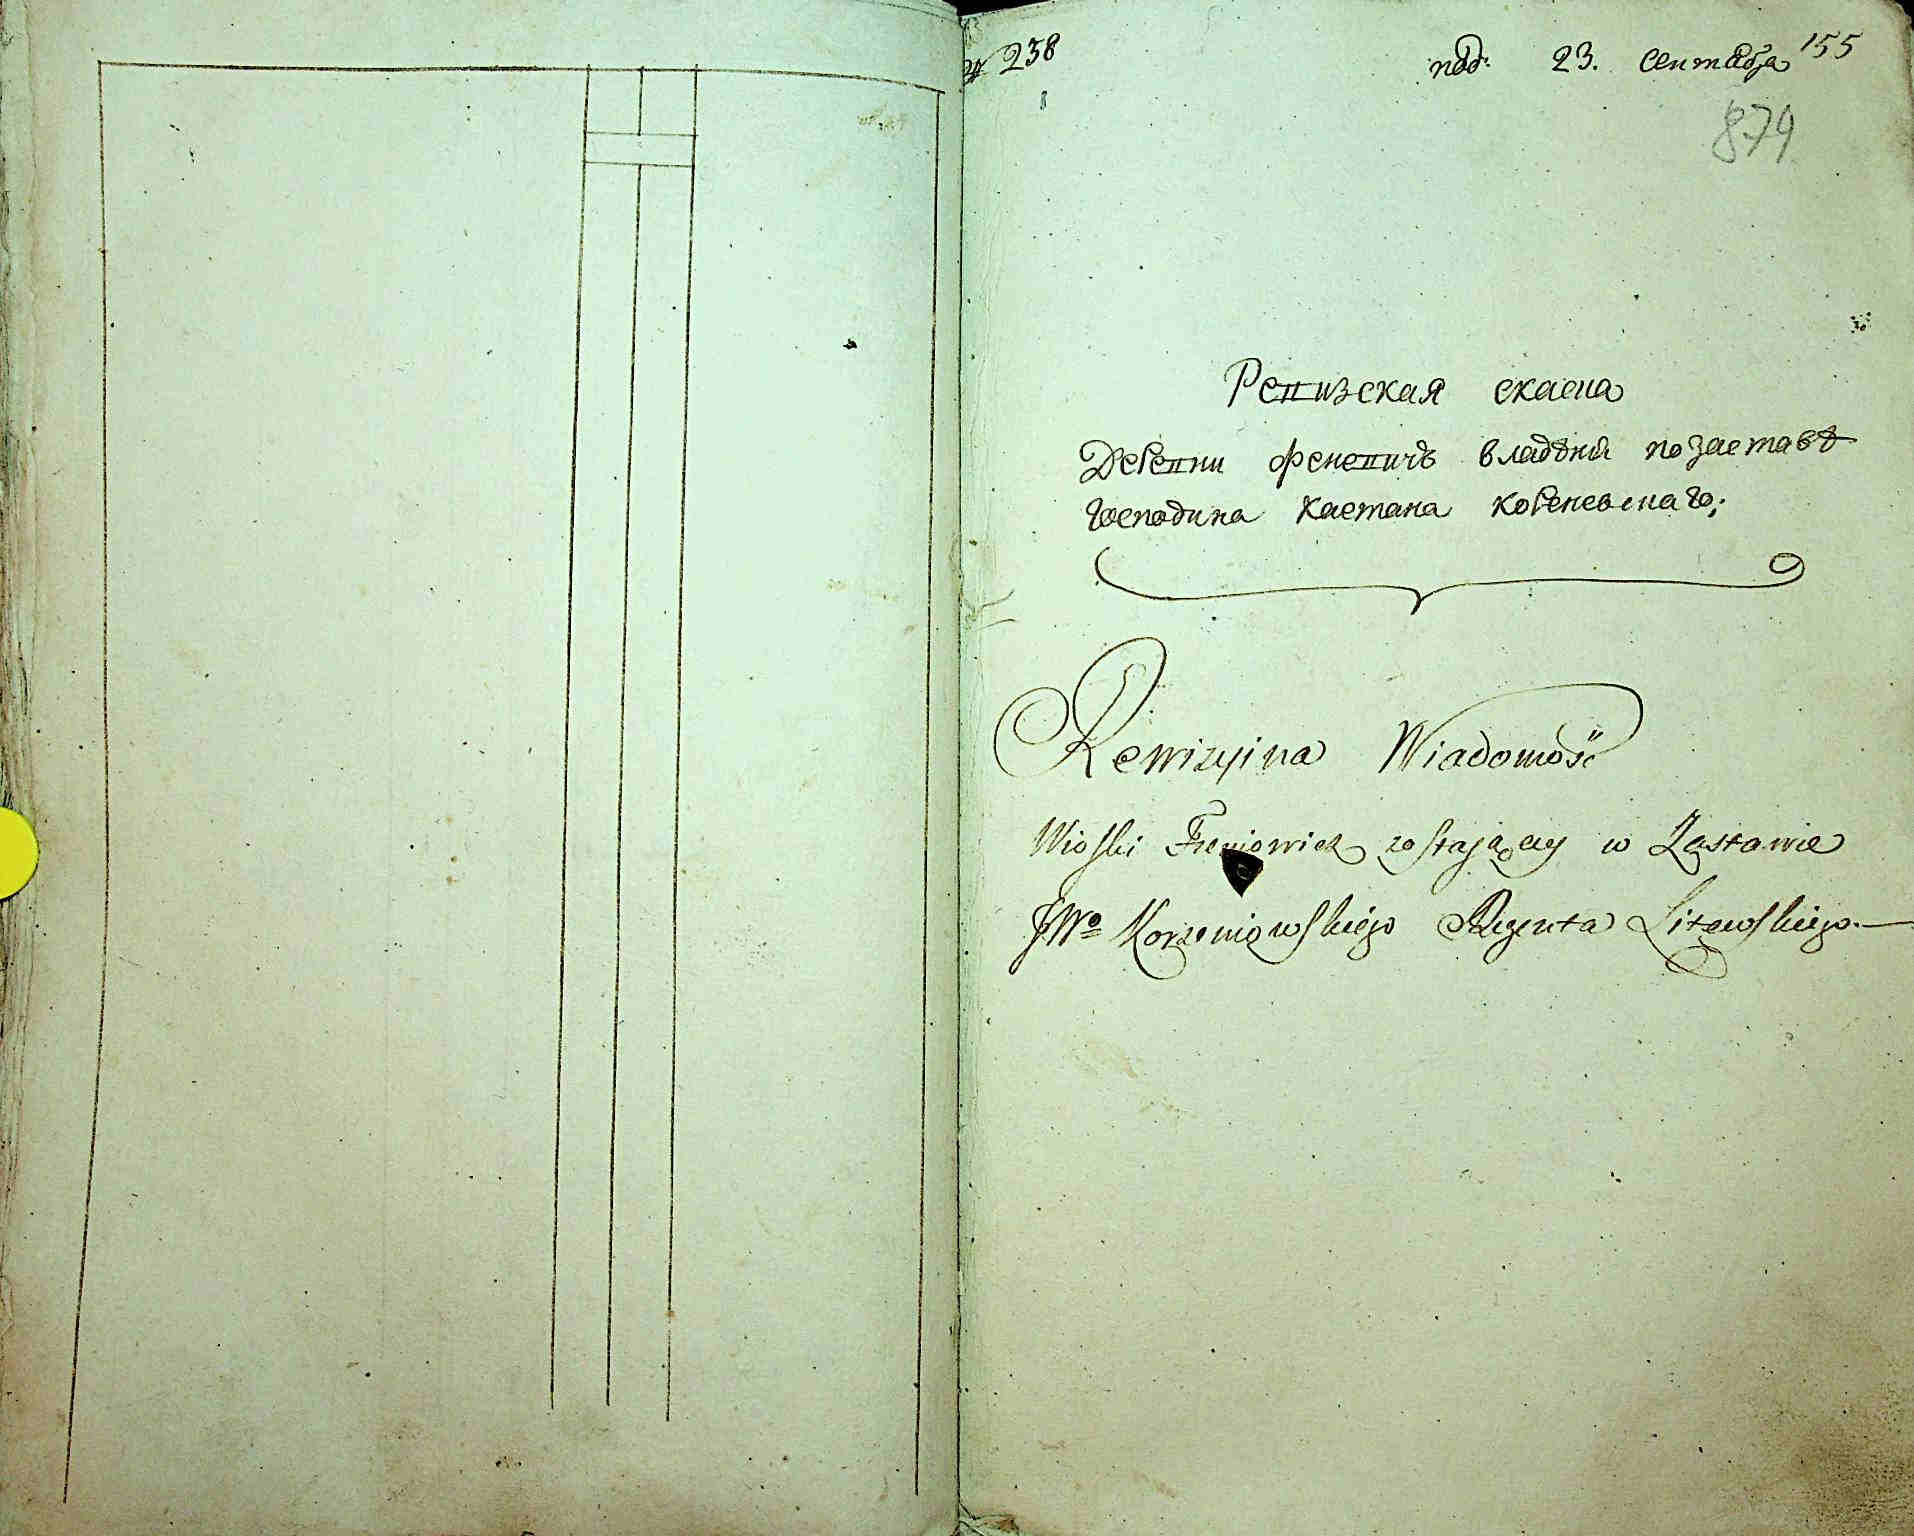 № 238
под. 23. сентебра 155
879
Ревизская скаска
Деревни феневичъ владѣни по заставѣ
господина каетана кореневскаго;
Rewizyina Wiadomość
Wioski Fieniowicz zostaiącey w Zastawie
JWo Korzeniowskiego Regenta Litewskiego.